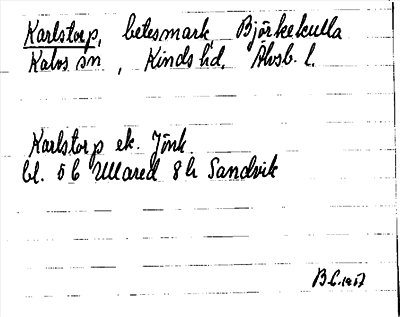 Karlstorp, betesmark, Björkekulla
Kalvs sn, Kinds hd, Älvsb. l.
Karlstorp ek. Jönk.
bl. 56 Ullared 8h Sandvik
B.L. 1957